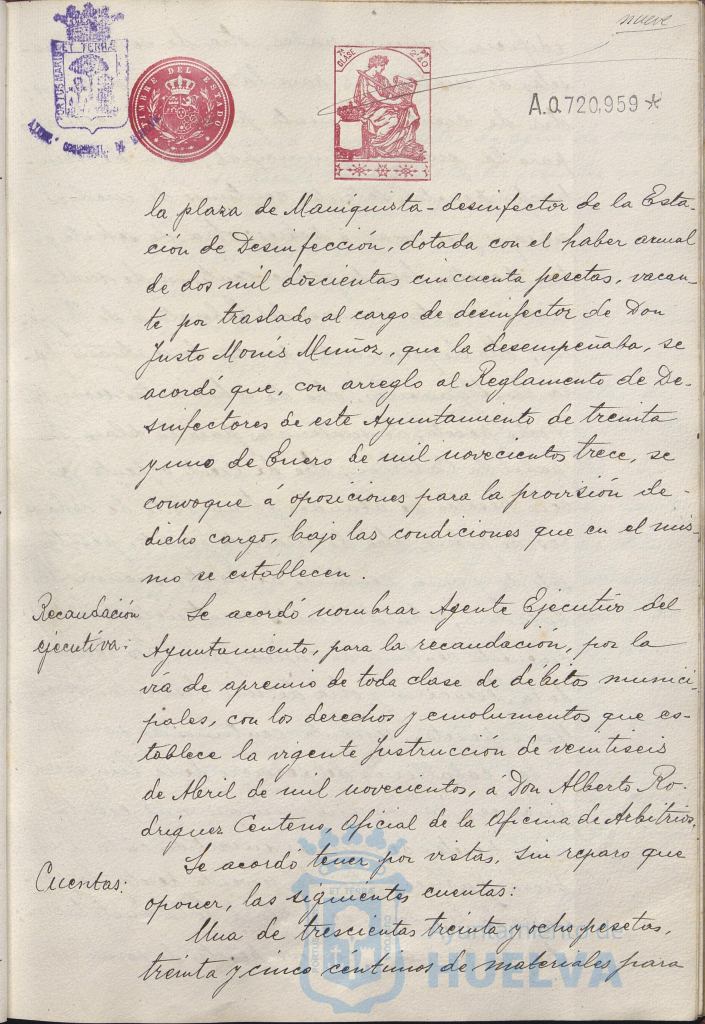 nueve
PORTUS MARIS ET TERRÆ
TIMBRE DEL ESTADO
7ª CLASE
A.0.720,959*
la plaza de Maniquista-desinfector de la Esta-
ción de Desinfección, dotada con el haber anual
de dos mil doscientas cincuenta pesetas, vacan-
te por traslado al cargo de desinfector de Don
Justo Monís Muñoz, que la desempeñaba, se
acordó que, con arreglo al Reglamento de De-
sinfectores de este Ayuntamiento de treinta
y uno de Enero de mil novecientos trece, se
convoque á oposiciones para la provisión de-
dicho cargo, bajo las condiciones que en el mis-
mo se establecen.
Recaudación
ejecutiva:
Se acordó nombrar Agente Ejecutivo del
Ayuntamiento, para la recaudación, por la
vía de apremio de toda clase de débitos munici-
pales, con los derechos y emolumentos que es-
tablece la vigente Instrucción de veintiseis
de Abril de mil novecientos, á Don Alberto Ro-
dríguez Centeno, Oficial de la Oficina de Arbitrios.
Cuentas:
Se acordó tener por vistas, sin reparo que
oponer, las siguientes cuentas:
Una de trescientas treinta y ocho pesetas,
treinta y cinco céntimos de materiales para
Ayuntamiento de
HUELVA